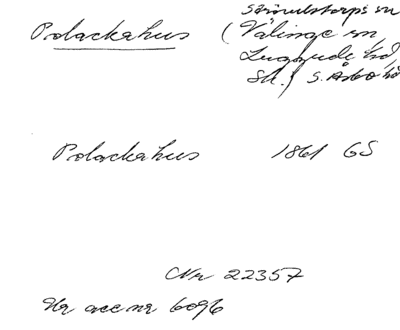 Starvelstorps sn
Polackahus (Välinge sn,
Luggude hd,
Sk.) S. Åsbo hd
Polackahus 1861 GS
Nr 22357
Ur acc nr 6096